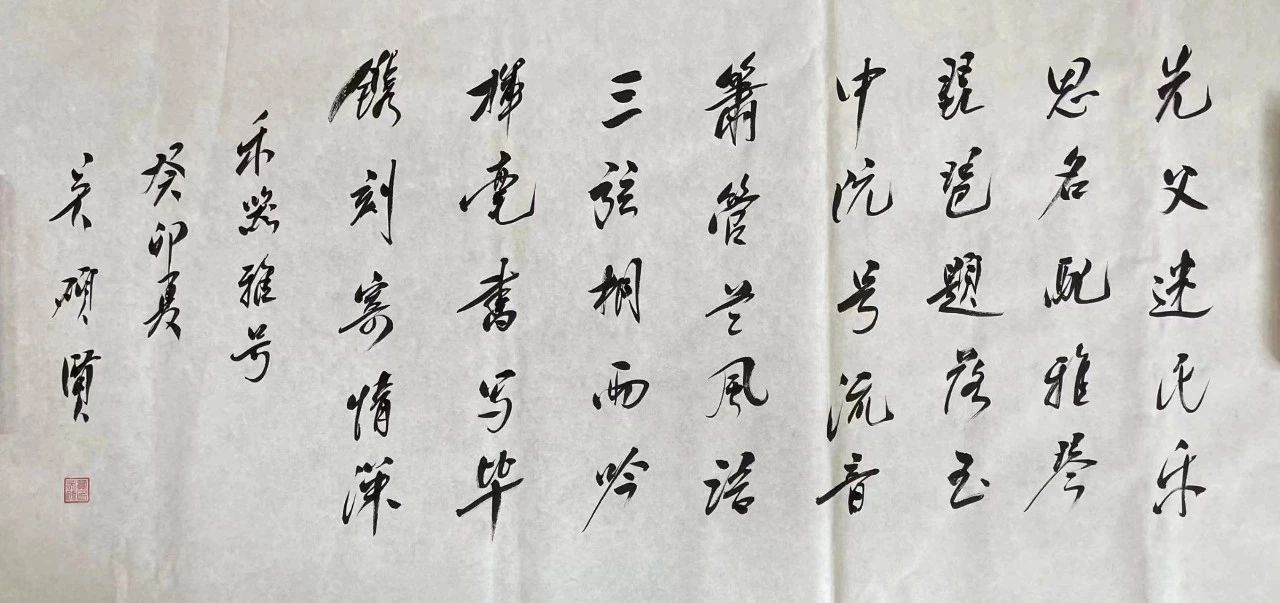 先父迷民乐
思名配雅琴
琵琶题落玉
中阮号流音
箫管兰风语
三弦桐雨吟
挥毫书写毕
镌刻寄情深
乐器雅号
癸卯夏
吴硕贤